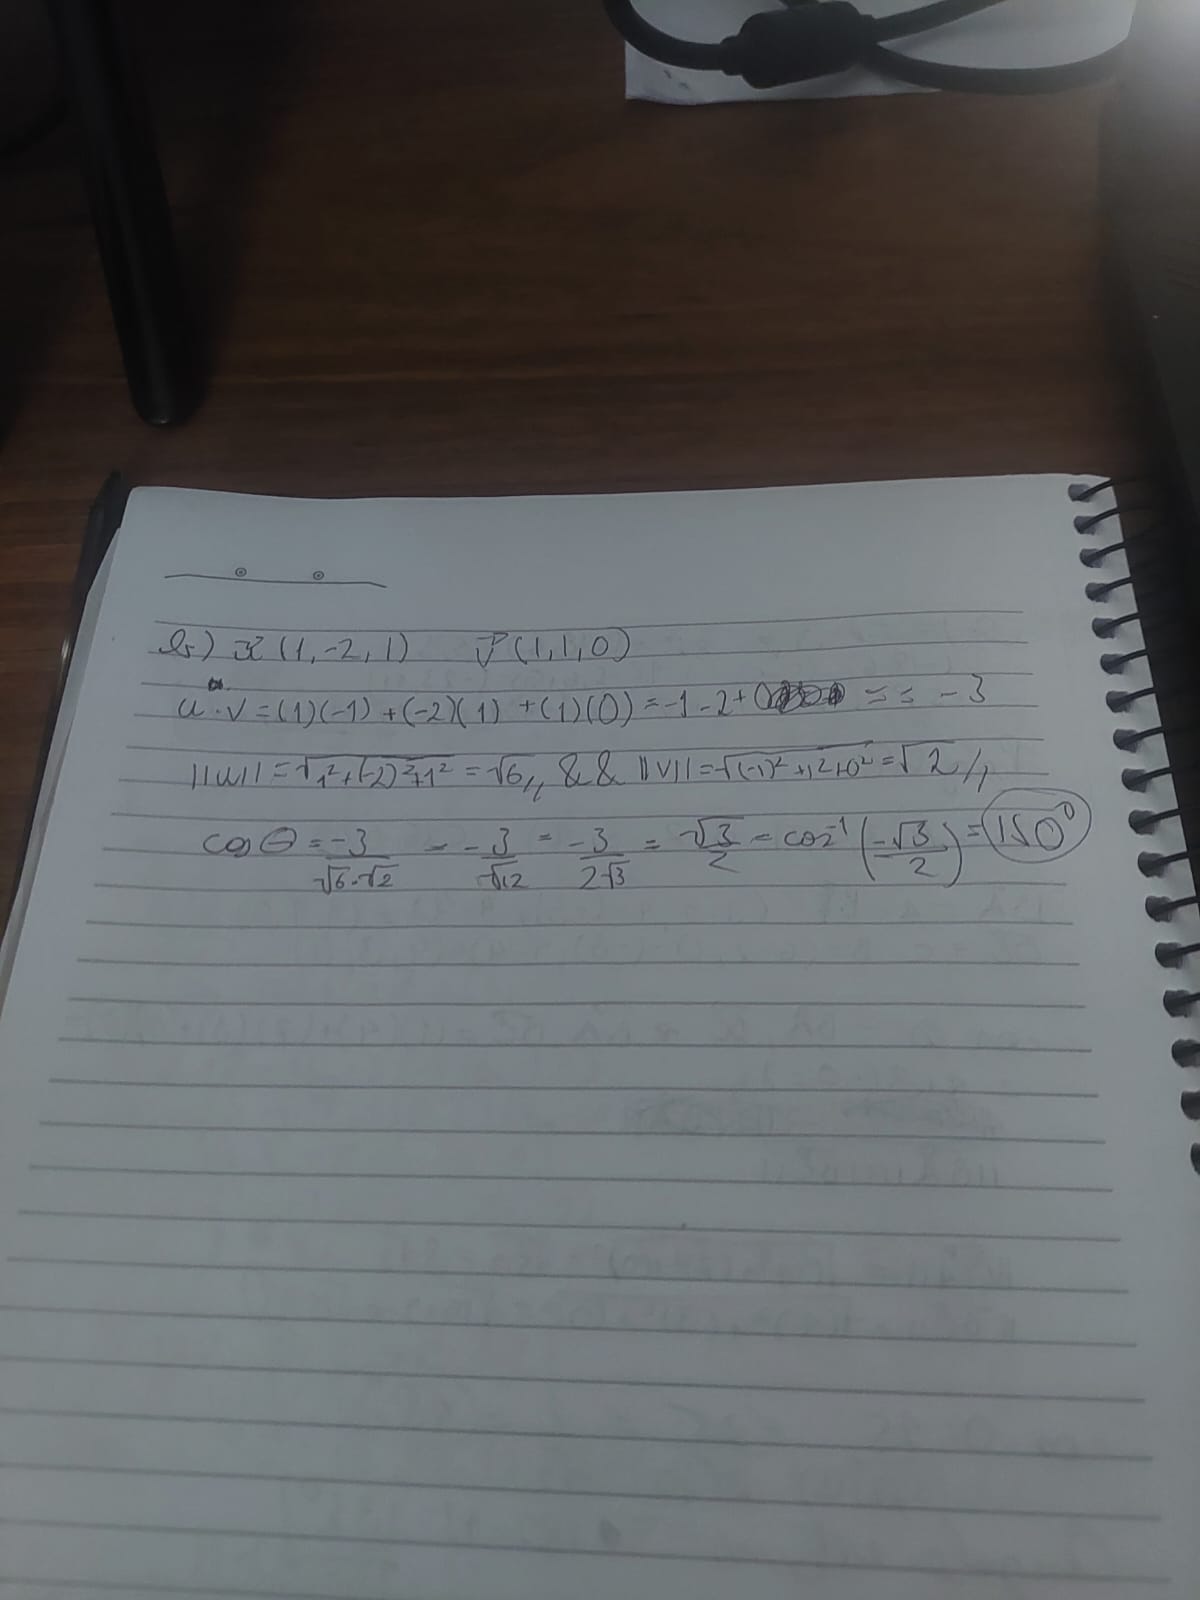 b) u (1,-2,1) v (1,1,0)
u·v=(1)(-1)+(-2)(1)+(1)(0)=-1-2+0 = = -3
||u||=√1²+(-2)²+1²=√6,, && ||v||=√(-1)²+1²+0²=√2//
cos θ = -3/√6·√2 = -3/√12 = -3/2√3 = √3/2 = cos⁻¹(-√3/2) = 150°